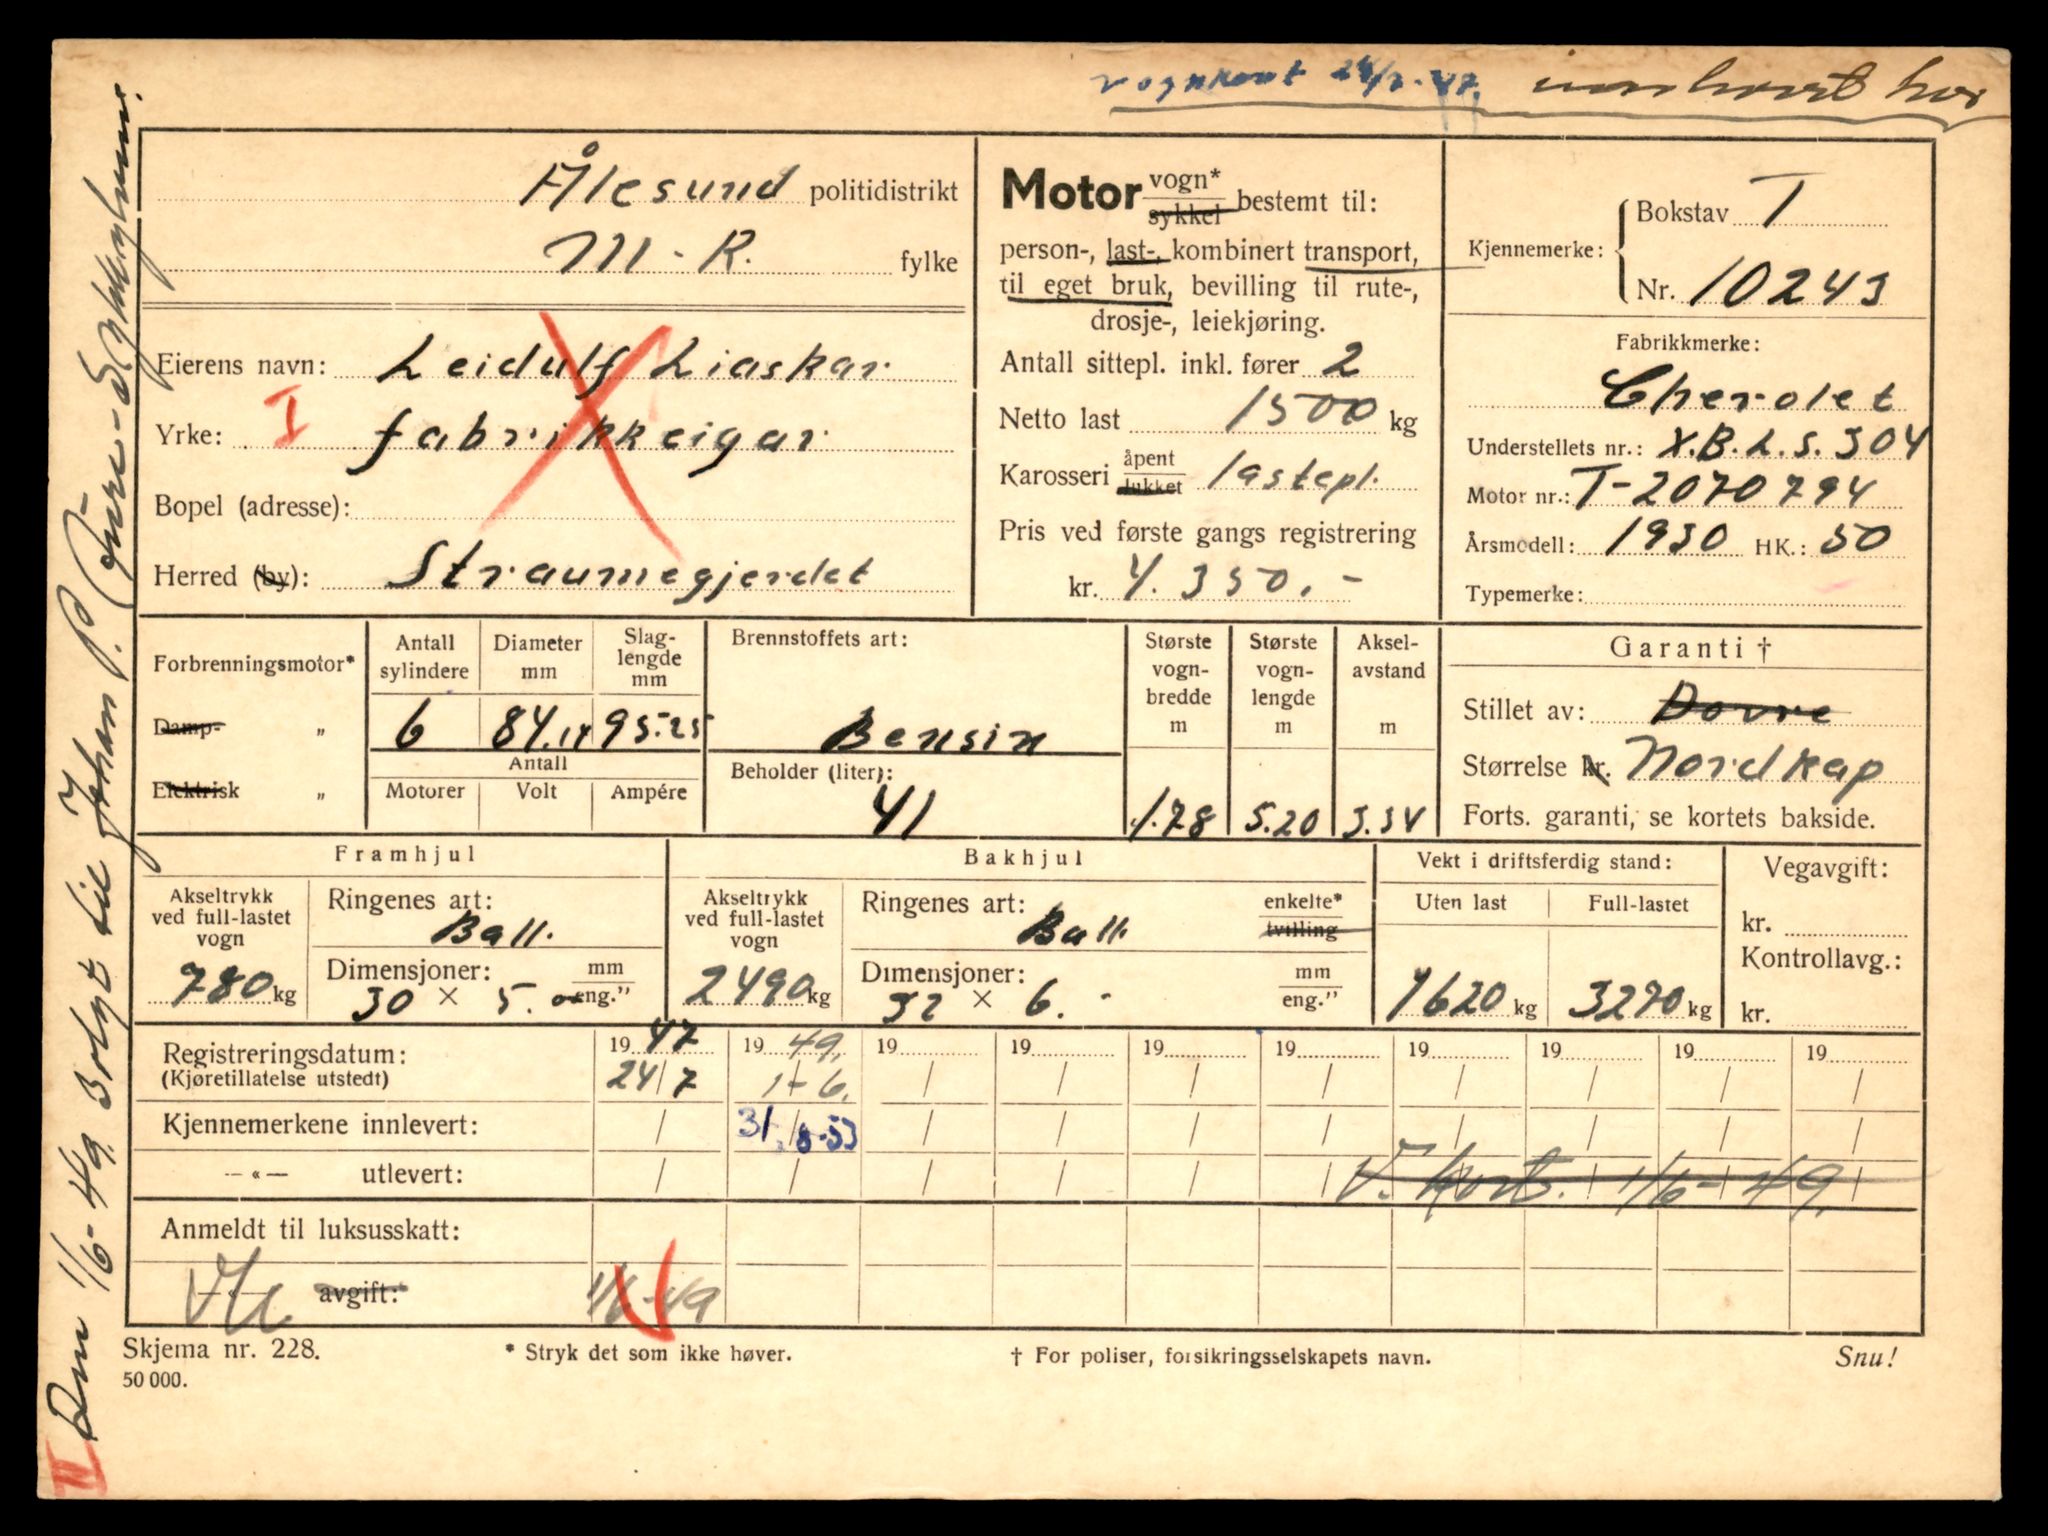 vognkort 24/7-47.
Ålesund politidistrikt
M-R. fylke
Eierens navn: Leidulf Liaskar
I
Yrke: fabrikkeigar
Bopel (adresse):
Herred (by): Straumegjerdet
Motor vogn* sykkel bestemt til:
person-, last-, kombinert transport,
til eget bruk, bevilling til rute-,
drosje-, leiekjøring.
Antall sittepl. inkl. fører 2
Netto last 1500 kg
Karosseri åpent lukket lastepl.
Pris ved første gangs registrering
kr. 4.350,-
Kjennemerke: Bokstav T
Nr. 10243
Fabrikkmerke:
Chevrolet
Understellets nr.: X.B.L.S.304
Motor nr.: T-2070794
Årsmodell: 1930 HK.: 50
Typemerke:
Forbrenningsmotor*
Damp- „
Elektrisk „
Antall sylindere
6
Diameter mm
84.14
Slaglengde mm
95.25
Antall
Motorer Volt Ampére
Brennstoffets art:
Bensin
Beholder (liter):
41
Største vognbredde m
1.78
Største vognlengde m
5.20
Akselavstand m
3.34
Garanti †
Stillet av: Dovre
Størrelse kr. Nordkap
Forts. garanti, se kortets bakside.
Framhjul
Akseltrykk ved full-lastet vogn
780 kg
Ringenes art:
Ball.
Dimensjoner: mm
30 × 5. eng."
Bakhjul
Akseltrykk ved full-lastet vogn
2490 kg
Ringenes art: enkelte*
Ball. tvilling
Dimensjoner: mm
32 × 6.- eng."
Vekt i driftsferdig stand:
Uten last Full-lastet
1620 kg 3270 kg
Vegavgift:
kr.
Kontrollavg.:
kr.
Registreringsdatum: 1947 1949. 19 19 19 19 19 19 19 19
(Kjøretillatelse utstedt) 24/7 1-6. / / / / / / / /
Kjennemerkene innlevert: / 31/8-53 / / / / / / / /
—«— utlevert: / / / / / / / / / /
V. kort. 1/6-49.
Anmeldt til luksusskatt:
—«— avgift: 1/6-49
Skjema nr. 228.
50 000.
* Stryk det som ikke høver.
† For poliser, forsikringsselskapets navn.
Snu!
II Den 1/6-49. solgt til Johan P.